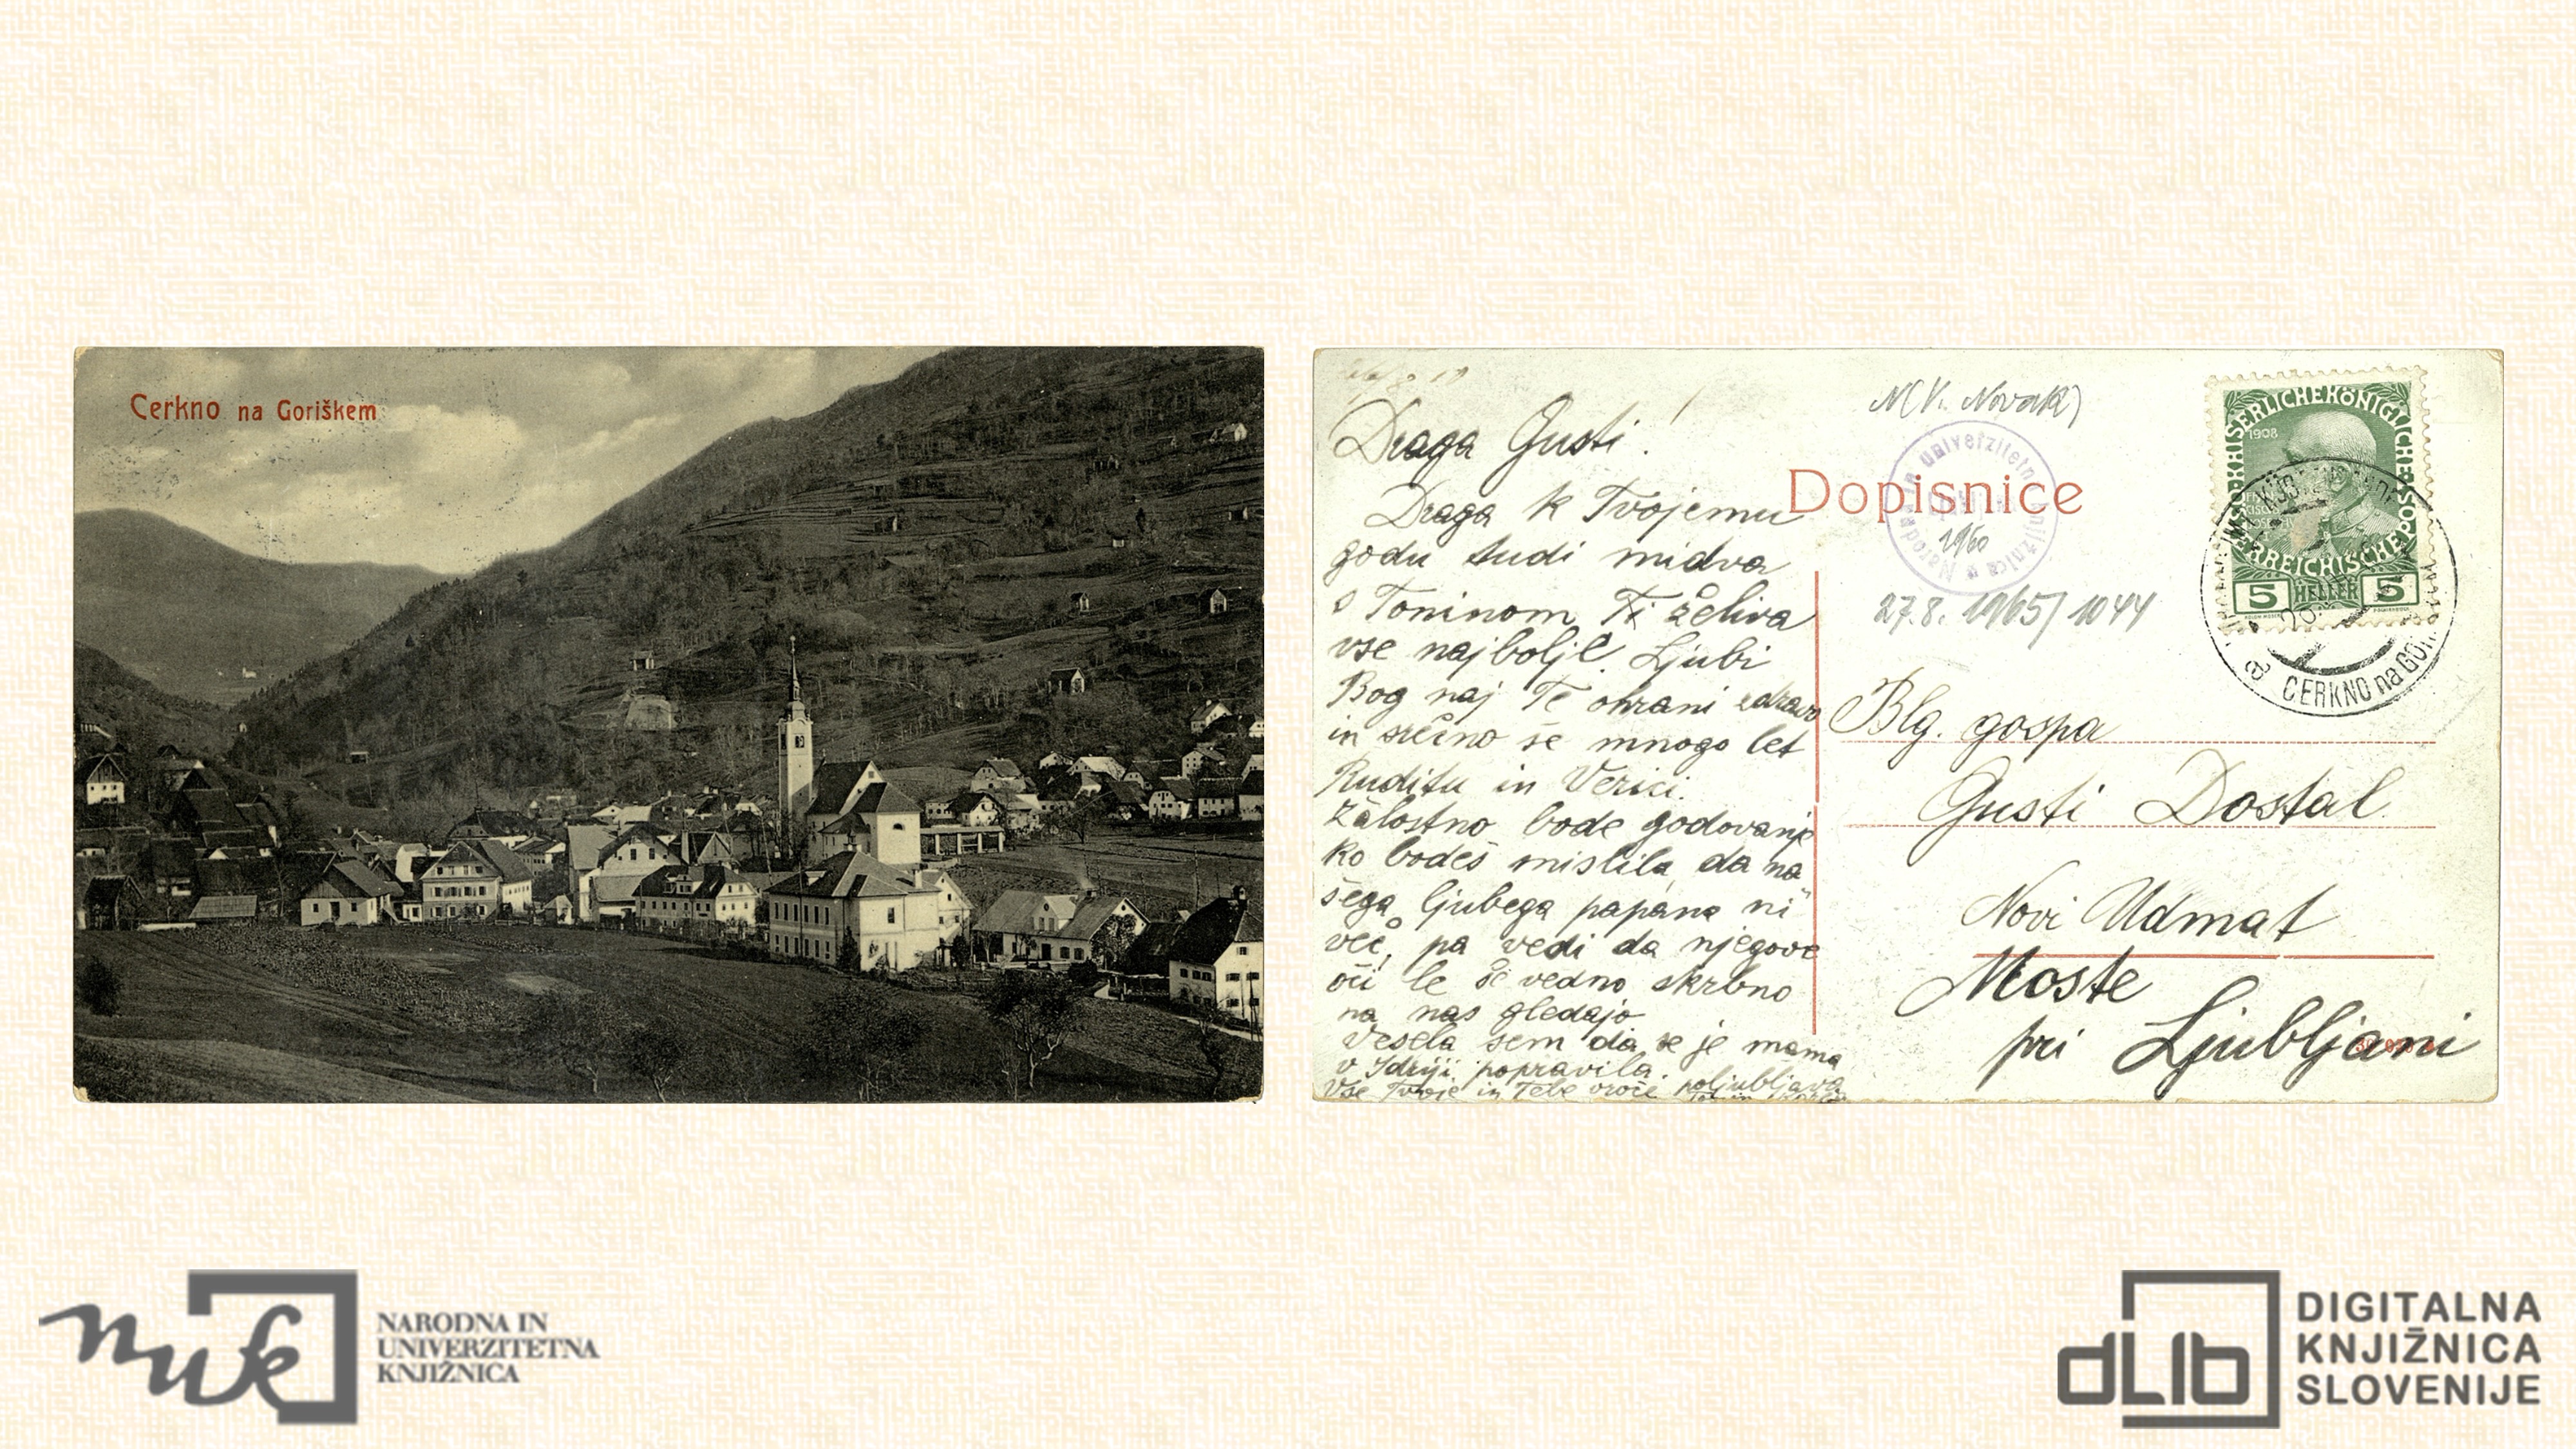 Cerkno na Goriškem
Draga Gusti!
Draga k Tvojemu
godu tudi midva
s Toninom Ti želiva
vse najbolje. Ljubi
Bog naj Te ohrani zdravo
in srečno še mnogo let
Ruditu in Verici.
Žalostno bode godovanje
ko bodeš mislila, da na
šega ljubega papana ni
več, pa vedi da njegove
oči le še vedno skrbno
na nas gledajo
Vesela sem da se je mama
v Idriji popravila.
Vse Tvoje in Tebe vroče poljubljava
N(V. Novak)
Dopisnice
Narodna in univerzitetna knjižnica
1960
27.8.1965/1044
1908
5 HELLER 5
a CERKNO na GOR.
Blg. gospa
Gusti Dostal
Novi Udmat
Moste
pri Ljubljani
nuk
NARODNA IN
UNIVERZITETNA
KNJIŽNICA
dLib
DIGITALNA
KNJIŽNICA
SLOVENIJE